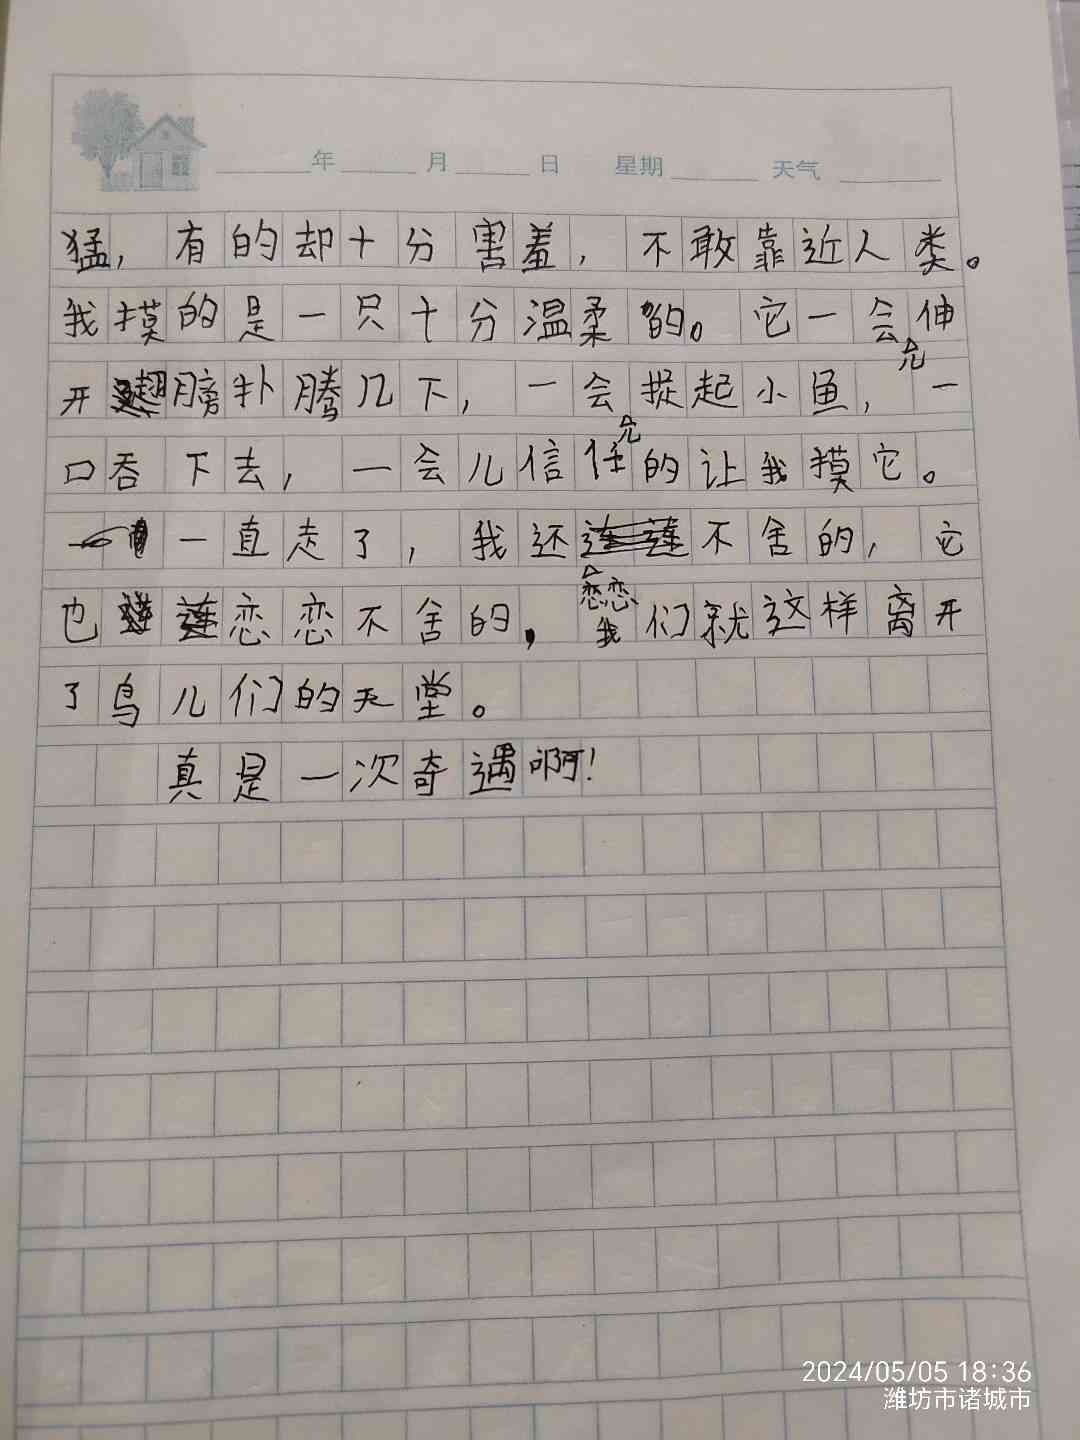 年 月 日 星期 天气
猛，有的却十分害羞，不敢靠近人类。
我摸的是一只十分温柔的。它一会儿伸
开翅膀扑腾几下，一会儿捉起小鱼，一
口吞下去，一会儿信任的让我摸它。
一直走了，我还恋恋不舍的，它
也恋恋不舍的，我们就这样离开
了鸟儿们的天堂。
真是一次奇遇啊！
2024/05/05 18:36
潍坊市诸城市